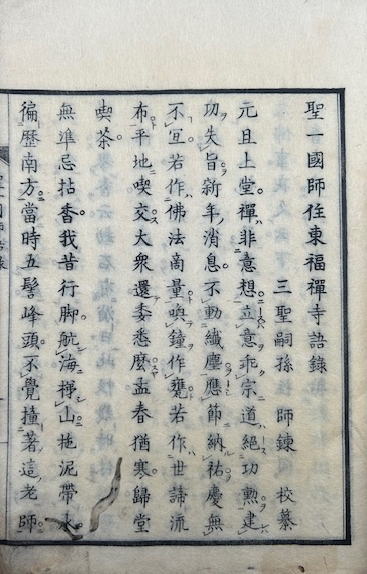 聖一國師住東福禪寺語錄
三聖嗣孫 師錬 校纂
元旦上堂禪非意想立意乖宗道絕功勲建
功失旨新年消息不動纖塵應節納祐慶無
不宜若作佛法商量喚鐘作甕若作世諦流
布平地喫交大衆還委悉麼孟春猶寒歸堂
喫茶
無準忌拈香我昔行脚航海梯山拖泥帶水
徧歷南方當時五髻峰頭不覺撞著這老師